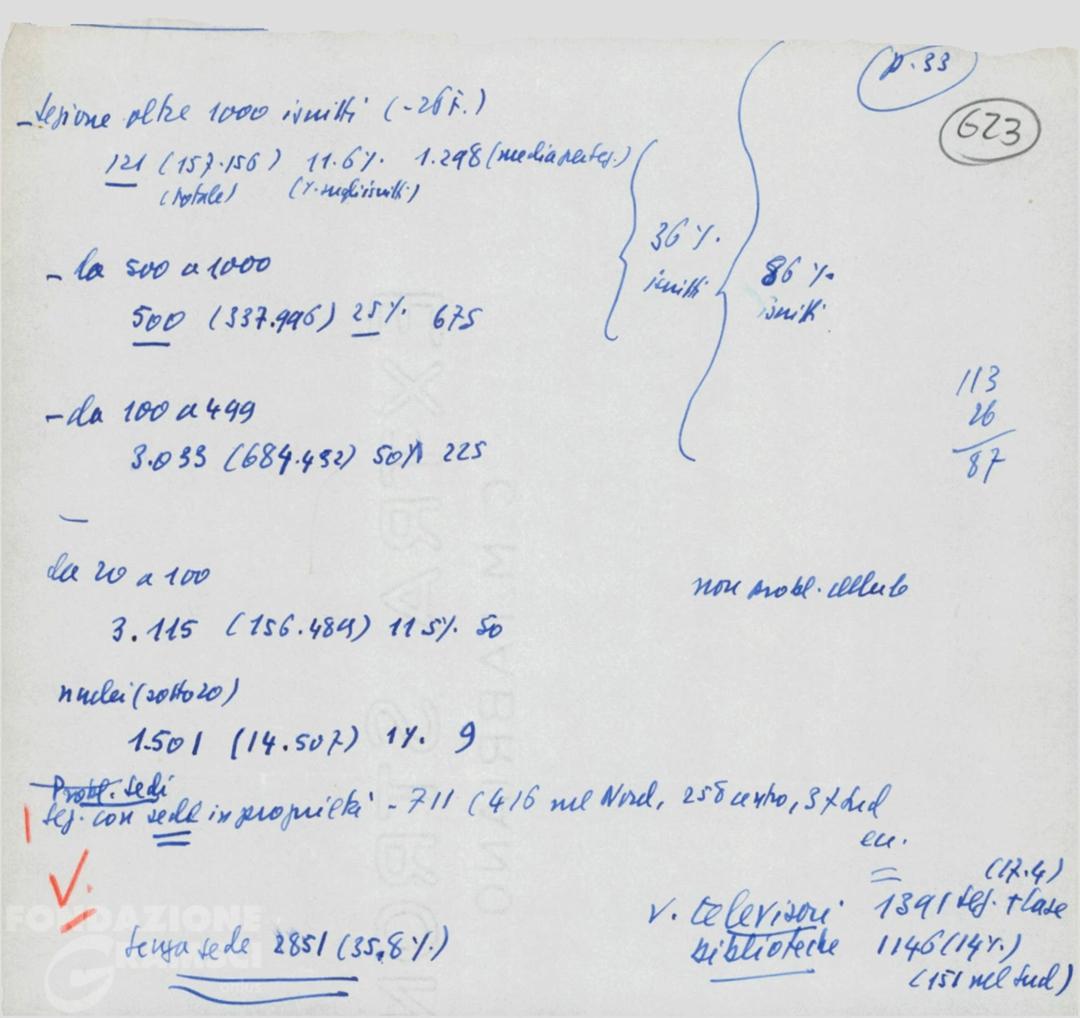 p.33
623
- Sezione oltre 1000 iscritti (-26 F.)
121 (157.156) 11.6% 1.298 (media per sez.)
(totale) (% sugli iscritti)
36 %
iscritti
86 %
iscritti
- da 500 a 1000
500 (337.996) 25% 675
113
26
87
- da 100 a 499
3.033 (684.432) 50% 225
da 20 a 100
3.115 (156.489) 11.5% 50
non probl. 
nuclei (sotto 20)
1.501 (14.507) 1% 9
Probl. Sedi
Sez. con sede in proprietà - 711 (416 nel Nord, 258 centro, 37 Sud
ecc.
V.
(17.4)
v. televisori 1391 sez.
biblioteche 1146 (14%)
(151 nel Sud)
Senza sede 2851 (35,8%)
FONDAZIONE
GRAMSCI
EXTRA STRONG
C M FABRIANO